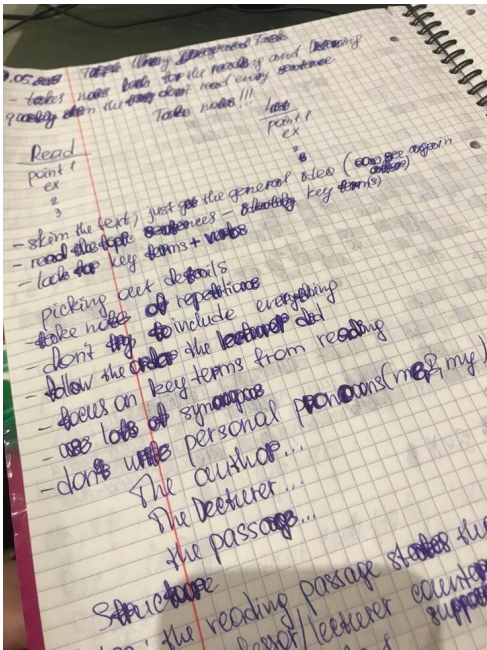 - takes notes both for the reading and listening
quickly skim the don't read every sentence
Take notes!!!
Read
point 1
ex
2
3
point 1
ex
2
3
- skim the text, just get the general idea (can see again
- read the topic sentences - identify key terms)
- look for key terms + verbs
picking out details
- take note of repetitions
- don't try to include everything
- follow the order the lecturer did
- focus on key terms from reading
- use lots of synonyms
- don't write personal pronouns (me, my)
The author...
The Lecturer...
the passage...
Structure
the reading passage states
/lecturer